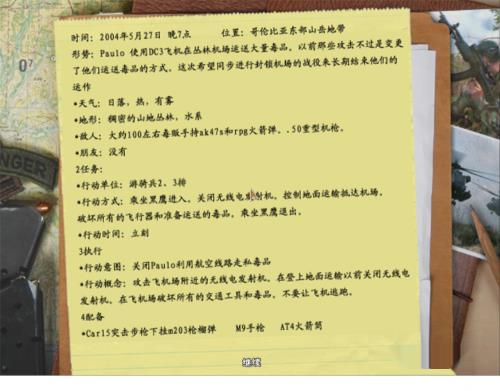 时间：2004年5月27日 晚7点 位置：哥伦比亚东部山岳地带
形势：Paulo 使用DC3飞机在丛林机场运送大量毒品，以前那些攻击不过是变更
了他们运送毒品的方式，这次希望同步进行封锁机场的战役来长期结束他们的
运作
*天气：日落，热，有雾
*地形：稠密的山地丛林，水系
*敌人：大约100左右毒贩手持ak47s和rpg火箭弹，.50重型机枪。
*朋友：没有
2任务：
*行动单位：游骑兵2、3排
*行动方式：乘坐黑鹰进入，关闭无线电发射机，控制地面运输抵达机场，
破坏所有的飞行器和准备运送的毒品，乘坐黑鹰退出。
*行动时间：立刻
3执行
*行动意图：关闭Paulo利用航空线路走私毒品
*行动概念：攻击飞机场附近的无线电发射机，在登上地面运输以前关闭无线电
发射机，在飞机场破坏所有的交通工具和毒品，不要让飞机逃跑。
4配备
*Car15突击步枪下挂m203枪榴弹 M9手枪 AT4火箭筒
继续